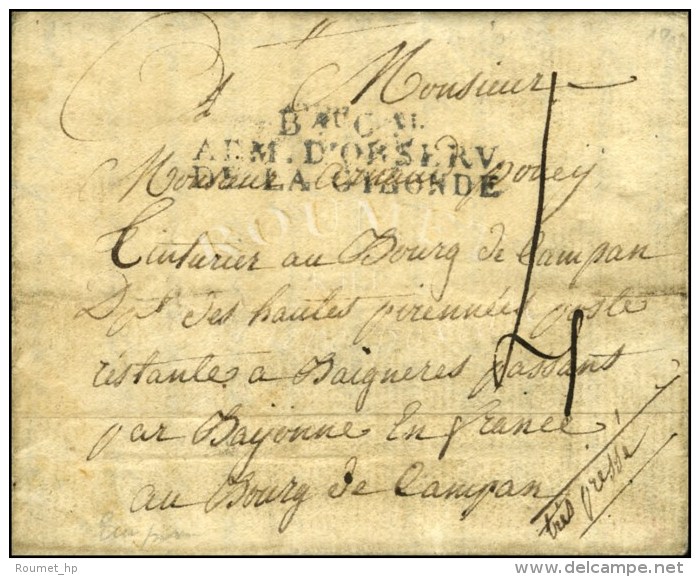 A Monsieur
BAU GAL
ARM. D'OBSERV
DE LA GIRONDE
Monsieur pouey
ROUMET
Tinturier au Bourg de Campan
Dpt des hautes pirennées poste
restante a Baigneres passant
par Bayonne En france
au Bourg de Campan
très pressé
Roumet_hp
delcampe.net